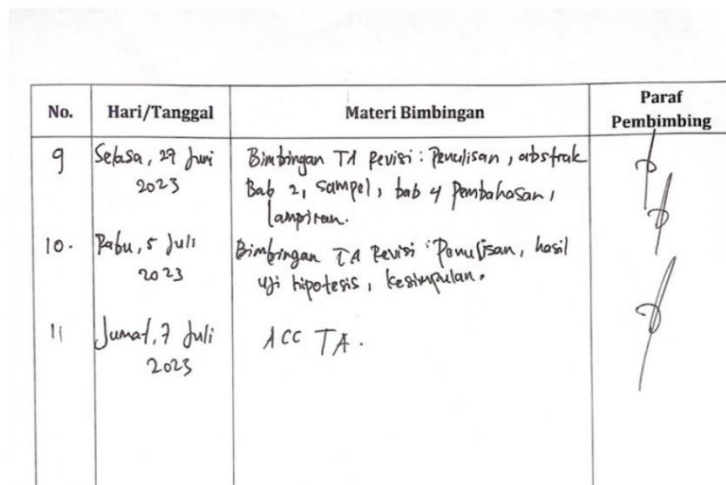 No. Hari/Tanggal Materi Bimbingan Paraf Pembimbing
9 Selasa, 29 Juni 2023 Bimbingan TA Revisi : Penulisan, abstrak
Bab 2, sampel, bab 4 Pembahasan,
lampiran.
10. Rabu, 5 Juli 2023 Bimbingan TA Revisi : Penulisan, hasil
uji hipotesis, kesimpulan.
11 Jumat, 7 Juli 2023 ACC TA.